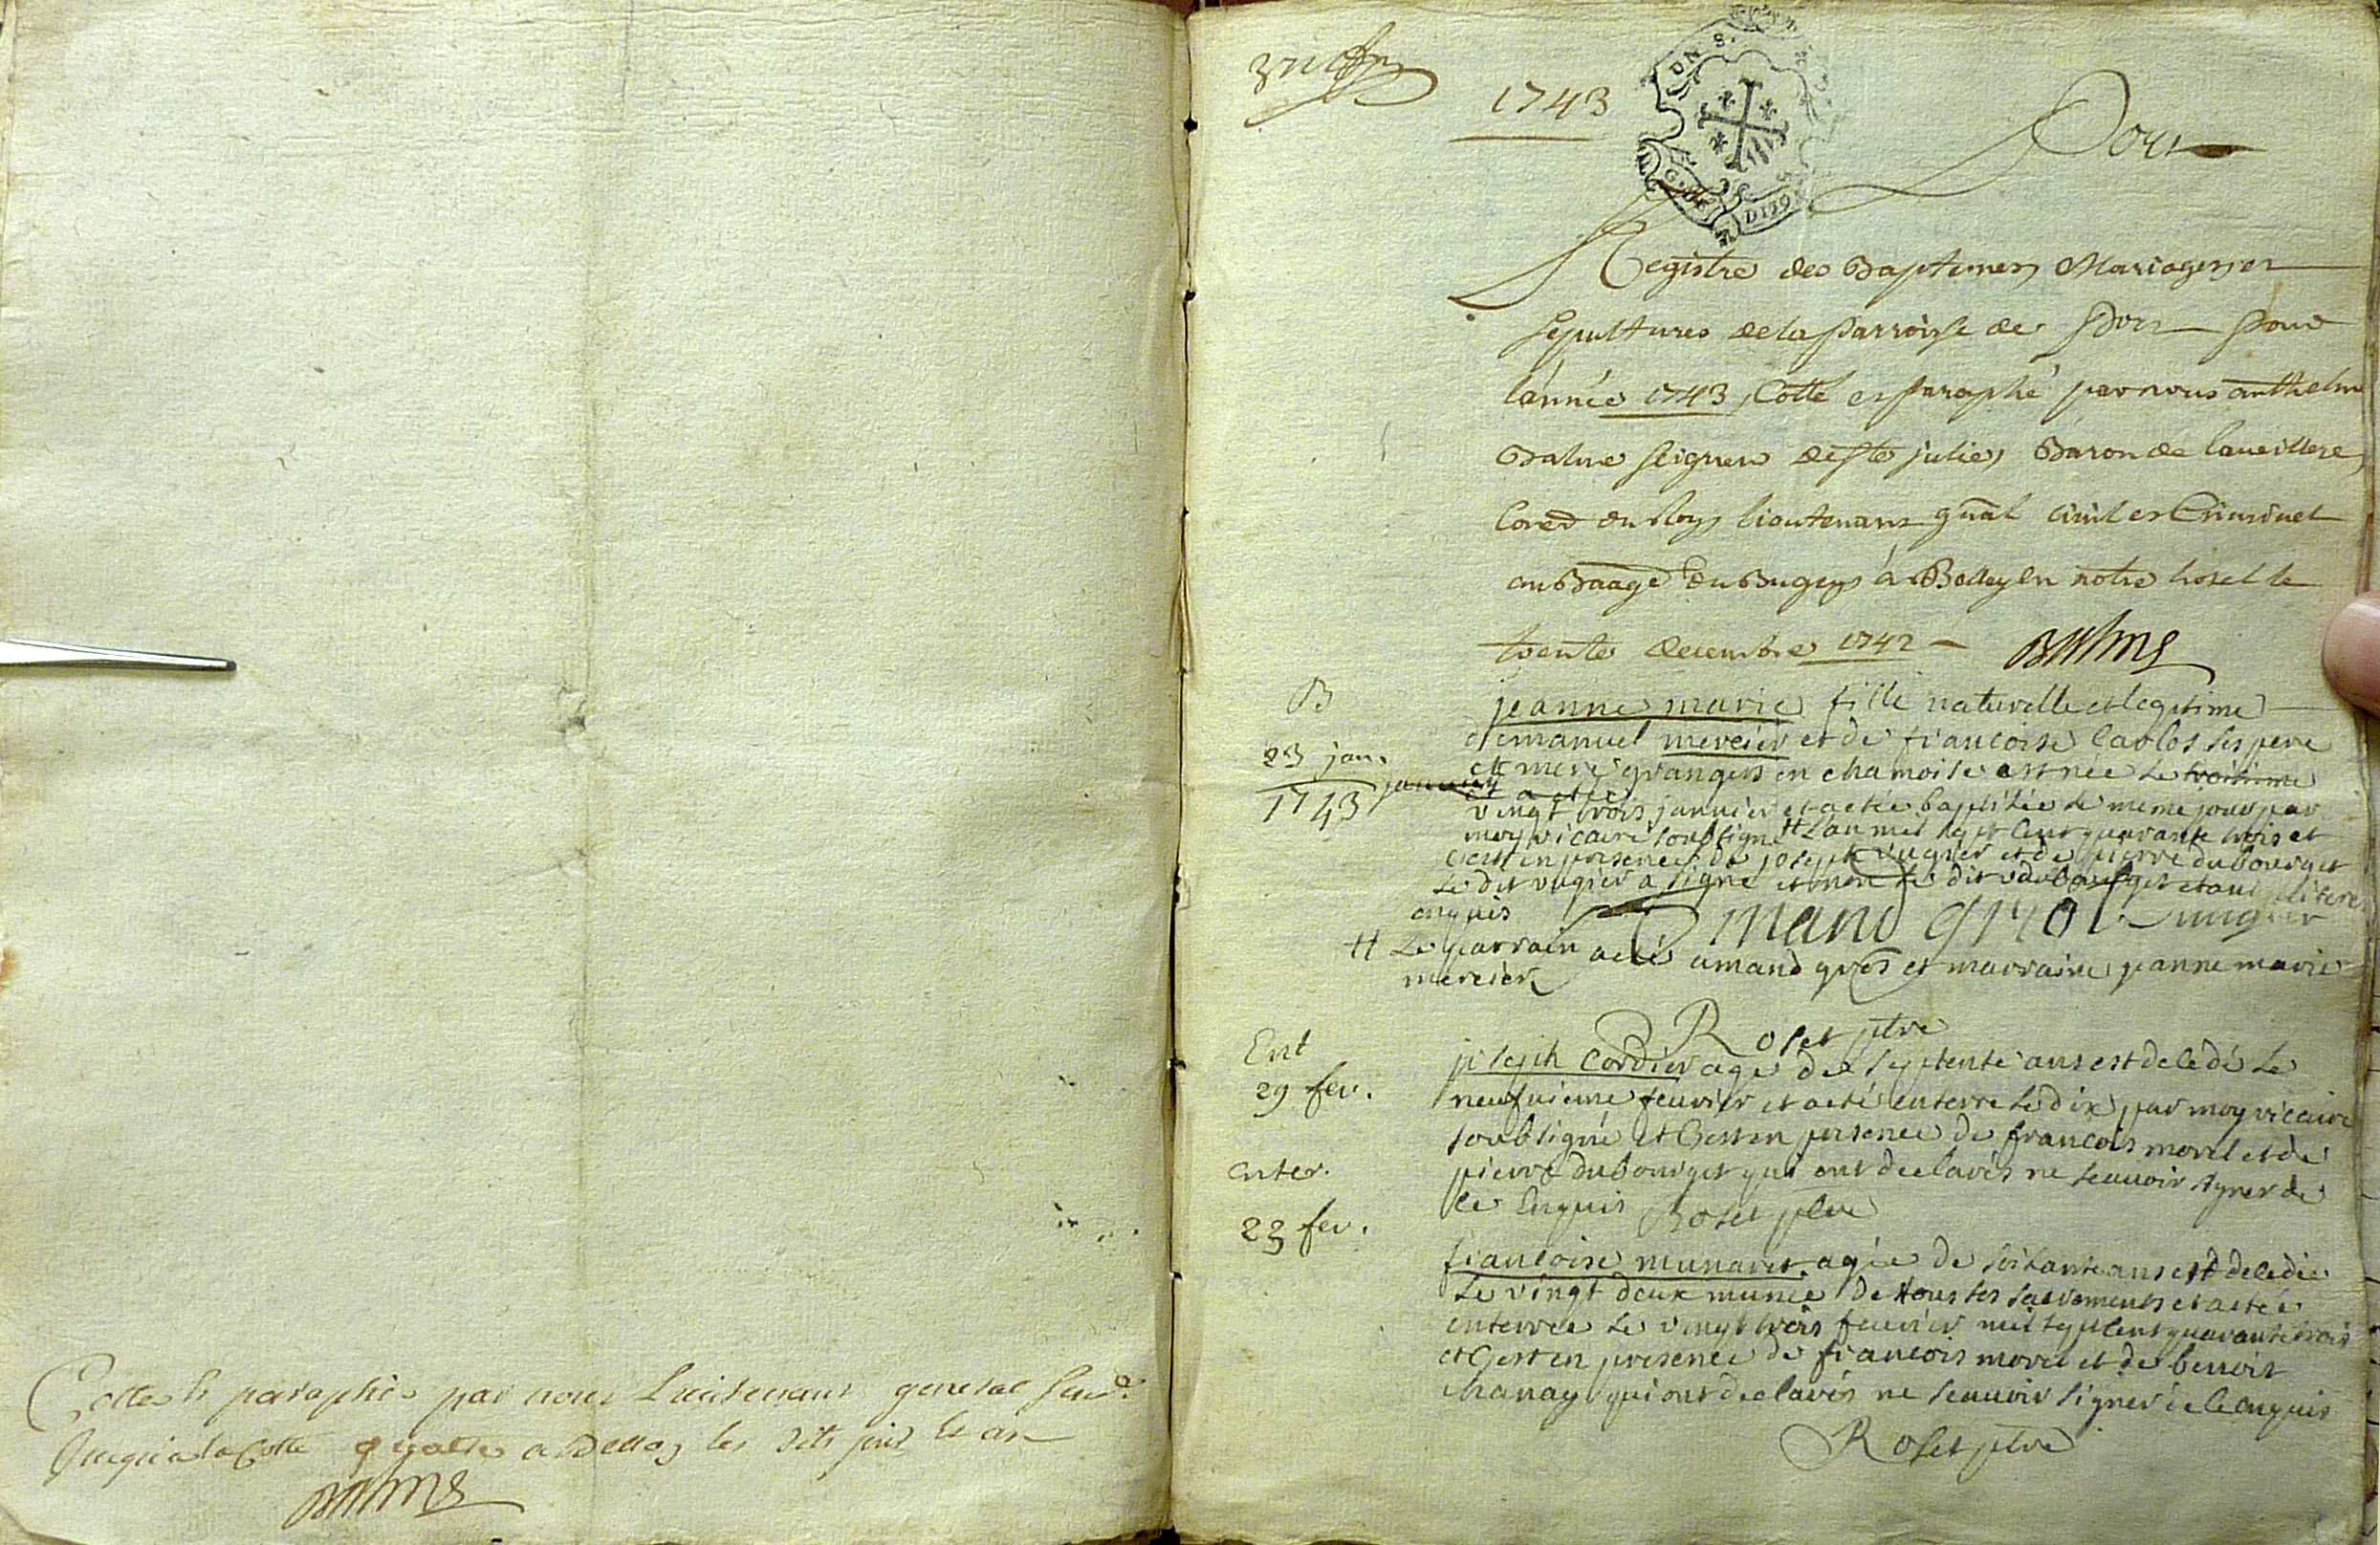 Cotté et paraphé par nous Lieutenant general
jusqua la Cotte quatre a Belley les dits jour et an
Balme
1743
DE S.
G. DE DIZ 9
Dors
Registre des Baptemes, Mariages, et
sepultures de la parroisse de Dors pour
l'année 1743, Cotté et paraphé par nous anthelme
Balme seigneur de Ste julie, Baron de
Con.er du Roy, lieutenant gñal civil et Criminel
au Baage du Bugeys à Belley en notre hotel le
trente decembre 1742 - Balme
B
23 jan.
1743
jeanne marie fille naturelle et legitime
d'emanuel mercier et de francoise Carlos ses pere
et mere grangers en chamoise est née le troisieme
janvier a eté
vingt trois janvier et a eté baptisée le meme jour par
moy vicaire soubsigné # l'an mil sept cent quarante trois et
c'est en presence de joseph vugier et de pierre dubourget
le dit vugier a signé et non le dit dubourget etant illitere
enquis amand griot vugier
# Le parrain a eté amand griot et marraine jeanne marie
mercier
Roset ptre
Ent
29 fev.
joseph Cordier agé de septente ans est decedé le
neufvieme fevrier et a eté enterré le dix par moy vicaire
soubsigné et C'est en presence de francois morel et de
pierre dubourget qui ont declarés ne scauoir signer de
ce Enquis Roset ptre
enter.
23 fev.
francoise munaret agée de soixante ans est decedée
Le vingt deux munie De tous ses sacrements et a eté
enterrée le vingt trois feurier mil sept cent quarante trois
et C'est en presence de francois morel et de benoit
chanay qui ont declarés ne scauoir signer de ce enquis
Roset ptre